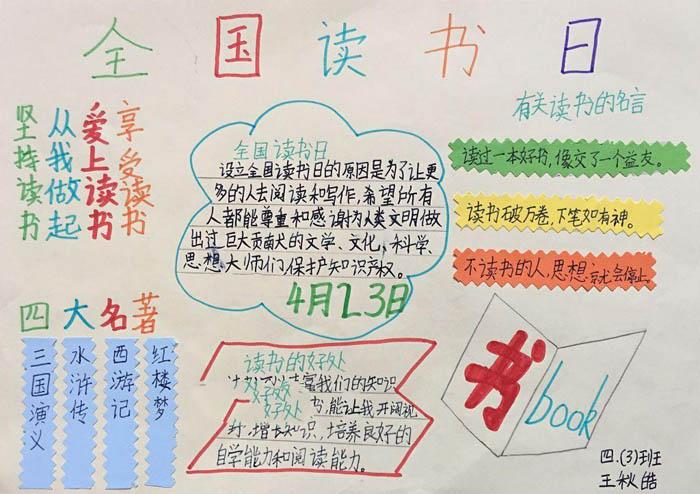 全国读书日
享受读书
爱上读书
从我做起
坚持读书
全国读书日
设立全国读书日的原因是为了让更
多的人去阅读和写作,希望所有
人都能尊重和感谢为人类文明做
出过巨大贡献的文学、文化、科学、
思想大师们,保护知识产权。
4月23日
有关读书的名言
读过一本好书,像交了一个益友。
读书破万卷,下笔如有神。
不读书的人,思想就会停止
四大名著
红楼梦
西游记
水浒传
三国演义
读书的好处
我们的知识
好处
好处 书,能让我开阔视
野,增长知识,培养良好的
自学能力和阅读能力。
书
book
四.(3)班
王秋皓